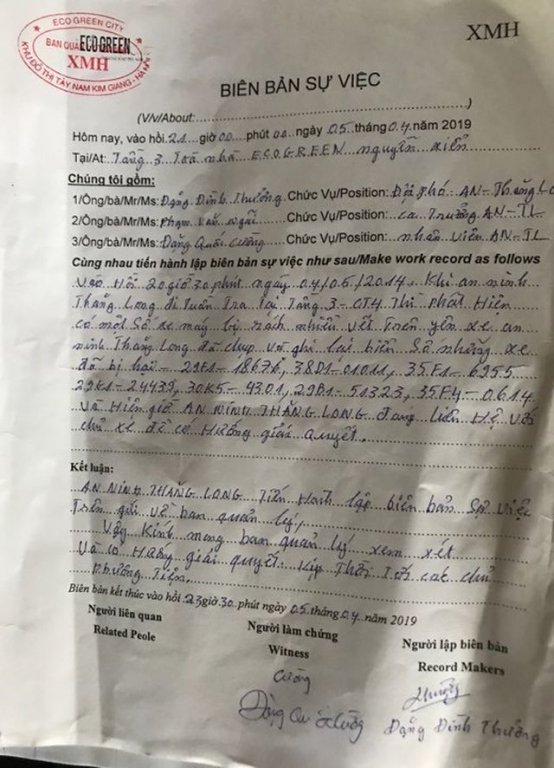 ECO GREEN CITY
BAN QUẢ ECOGREEN
XMH
KHU ĐÔ THỊ TÂY NAM KIM GIANG - HÀ N
XMH
BIÊN BẢN SỰ VIỆC
(V/v/About:....................)
Hôm nay, vào hồi 21 giờ 00 phút 00 ngày 05 tháng 04 năm 2019
Tại/At: Tầng 3 Toà nhà ECOGREEN nguyễn xiển
Chúng tôi gồm:
1/Ông/bà/Mr/Ms: Đặng Đình Thưởng Chức Vụ/Position: Đội phó AN-Thăng Lo
2/Ông/bà/Mr/Ms: Phạm Văn Chức Vụ/Position: ca Trưởng AN-TL
3/Ông/bà/Mr/Ms: Đặng Quốc Cường Chức Vụ/Position: nhân viên AN-TL
Cùng nhau tiến hành lập biên bản sự việc như sau/Make work record as follows
Vào Hồi 20 giờ 30 phút ngày 04/05/2019. Khi an ninh
Thăng Long đi Tuần Tra Tại Tầng 3-CT4 Thì phát Hiện
có một Số xe máy bị rách nhiều vết Trên yên xe an
ninh Thăng Long đã chụp và ghi lại biển Số những xe
đã bị hại - 29F1-18676, 38D1-01011, 35F1-6955
29K1-24439, 30K5-4301, 29B1-51323, 35F4-0614
Và Hiện giờ AN NINH THĂNG LONG đang liên Hệ với
chủ xe để có Hướng giải quyết.
Kết luận:
AN NINH THĂNG LONG Tiến Hành lập biên bản Sự việc
Trên gửi về ban quản lý,
Vậy Kính mong ban quản lý xem xét
Và có Hướng giải quyết Kịp Thời Tới các chủ
phương Tiện.
Biên bản kết thúc vào hồi 23 giờ 30 phút ngày 05 tháng 04 năm 2019
Người liên quan
Related Peole
Người làm chứng
Witness
Người lập biên bản
Record Makers
Cường
Thưởng
Đặng Quốc Cường
Đặng Đình Thưởng